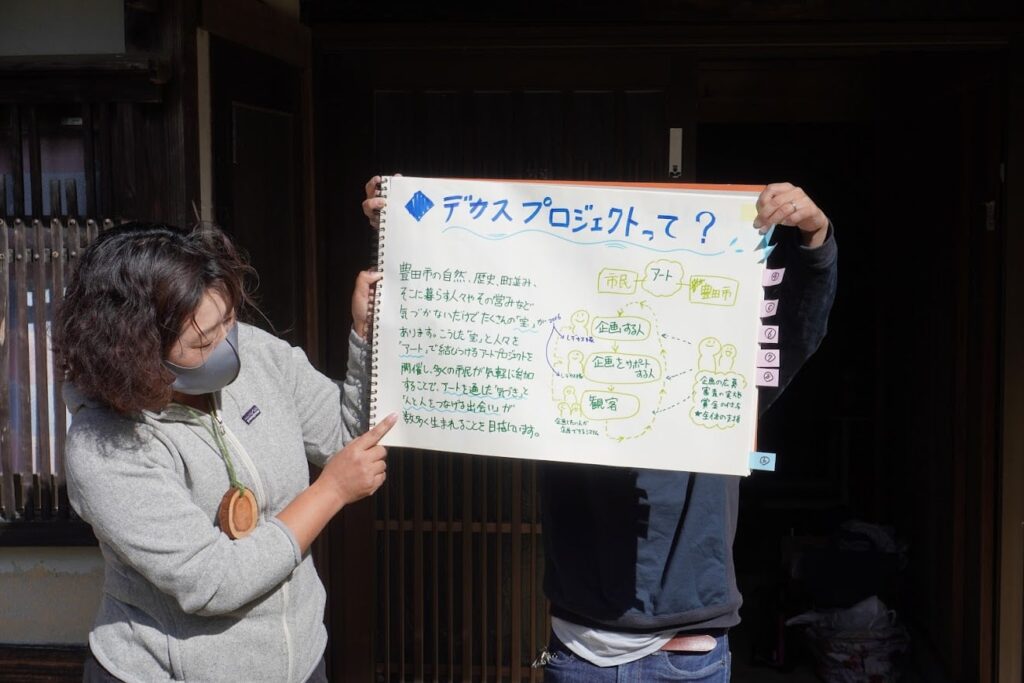 デカスプロジェクトって？
豊田市の自然、歴史、町並み、
そこに暮らす人々やその営みなど
気づかないだけでたくさんの「宝」が
あります。こうした「宝」と人々を
「アート」で結びつけるアートプロジェクトを
開催し、多くの市民が気軽に参加
することで、アートを通した「気づき」と
「人と人をつなげる出会い」が
数多く生まれることを目指しています。
市民
アート
豊田市
企画する人
企画をサポート
する人
観客
企画の応募
審査の実施
賞金の付与
★全体の支援
patagonia